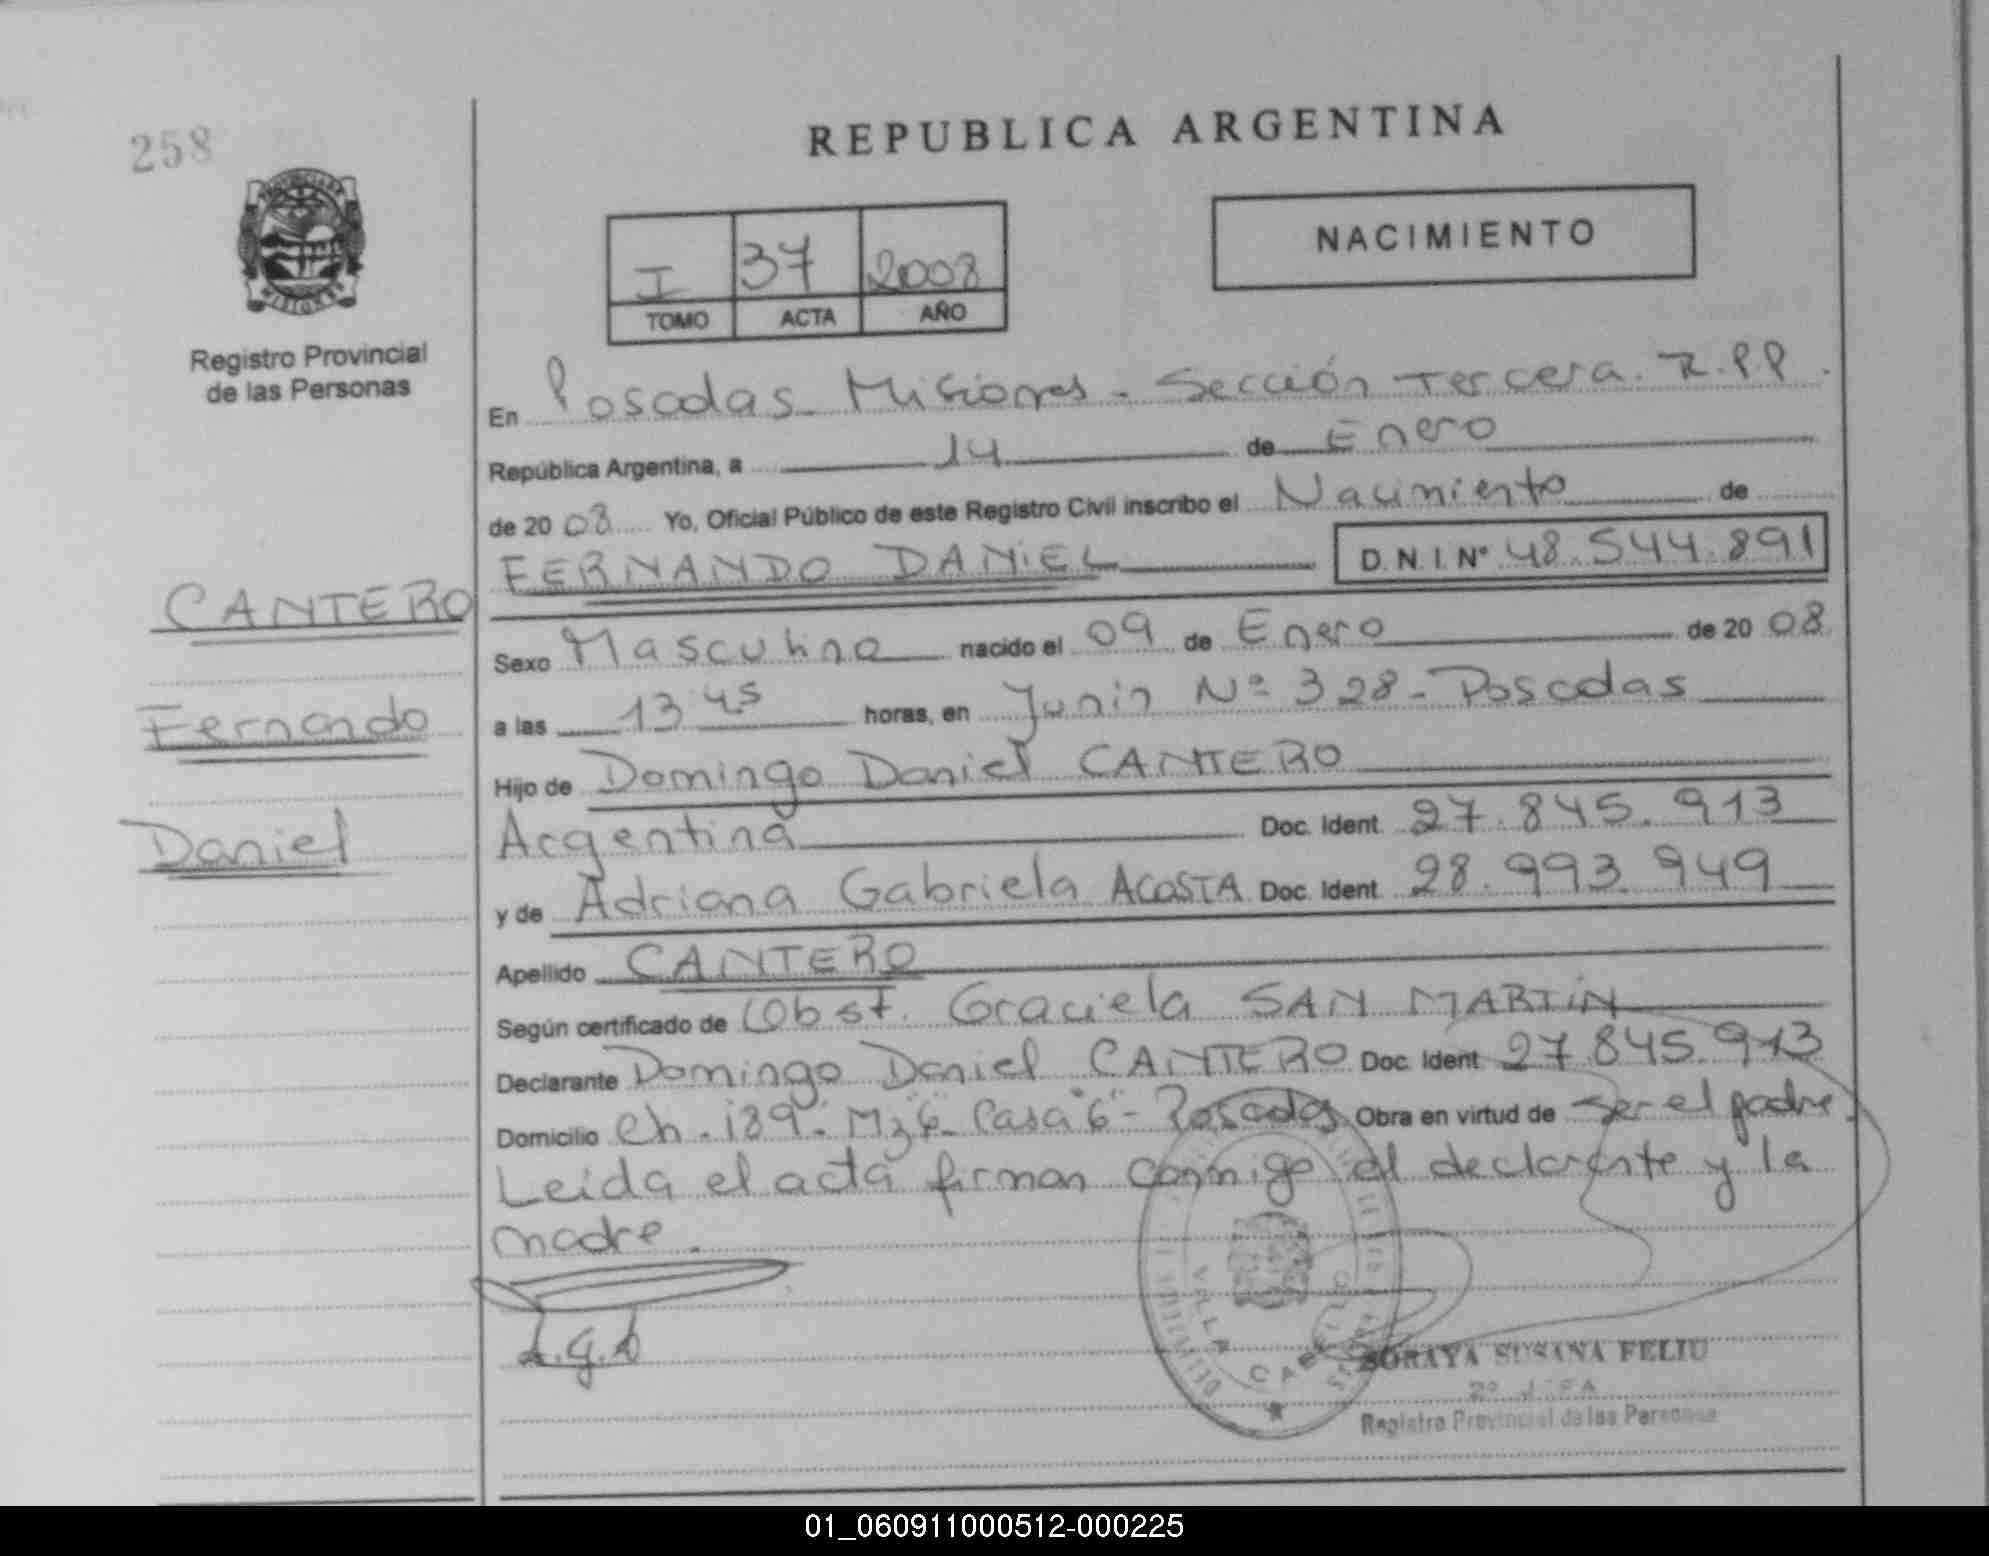 258
REPUBLICA ARGENTINA
NACIMIENTO
I 37 2008
TOMO ACTA AÑO
Registro Provincial
de las Personas
En Posadas - Misiones - Sección Tercera. R.P.P.
República Argentina, a 14 de Enero
de 2008 Yo, Oficial Público de este Registro Civil inscribo el Nacimiento de
FERNANDO DANIEL D.N.I. Nº 48.544.891
CANTERO
Fernando
Daniel
Sexo Masculino nacido el 09 de Enero de 2008
a las 13 45 horas, en Junin Nº 328 - Posadas
Hijo de Domingo Daniel CANTERO
Argentina Doc. Ident. 27.845.913
y de Adriana Gabriela ACOSTA Doc. Ident. 28.993.949
Apellido CANTERO
Según certificado de Obst. Graciela SAN MARTIN
Declarante Domingo Daniel CANTERO Doc. Ident. 27.845.913
Domicilio Ch. 189 - Mz 6 - Casa "6" - Posadas Obra en virtud de ser el padre.
Leida el acta firman conmigo el declarante y la
madre.
A.g.A
VILLA CABELLO
SORAYA SUSANA FELIU
Registro Provincial de las Personas
01_060911000512-000225